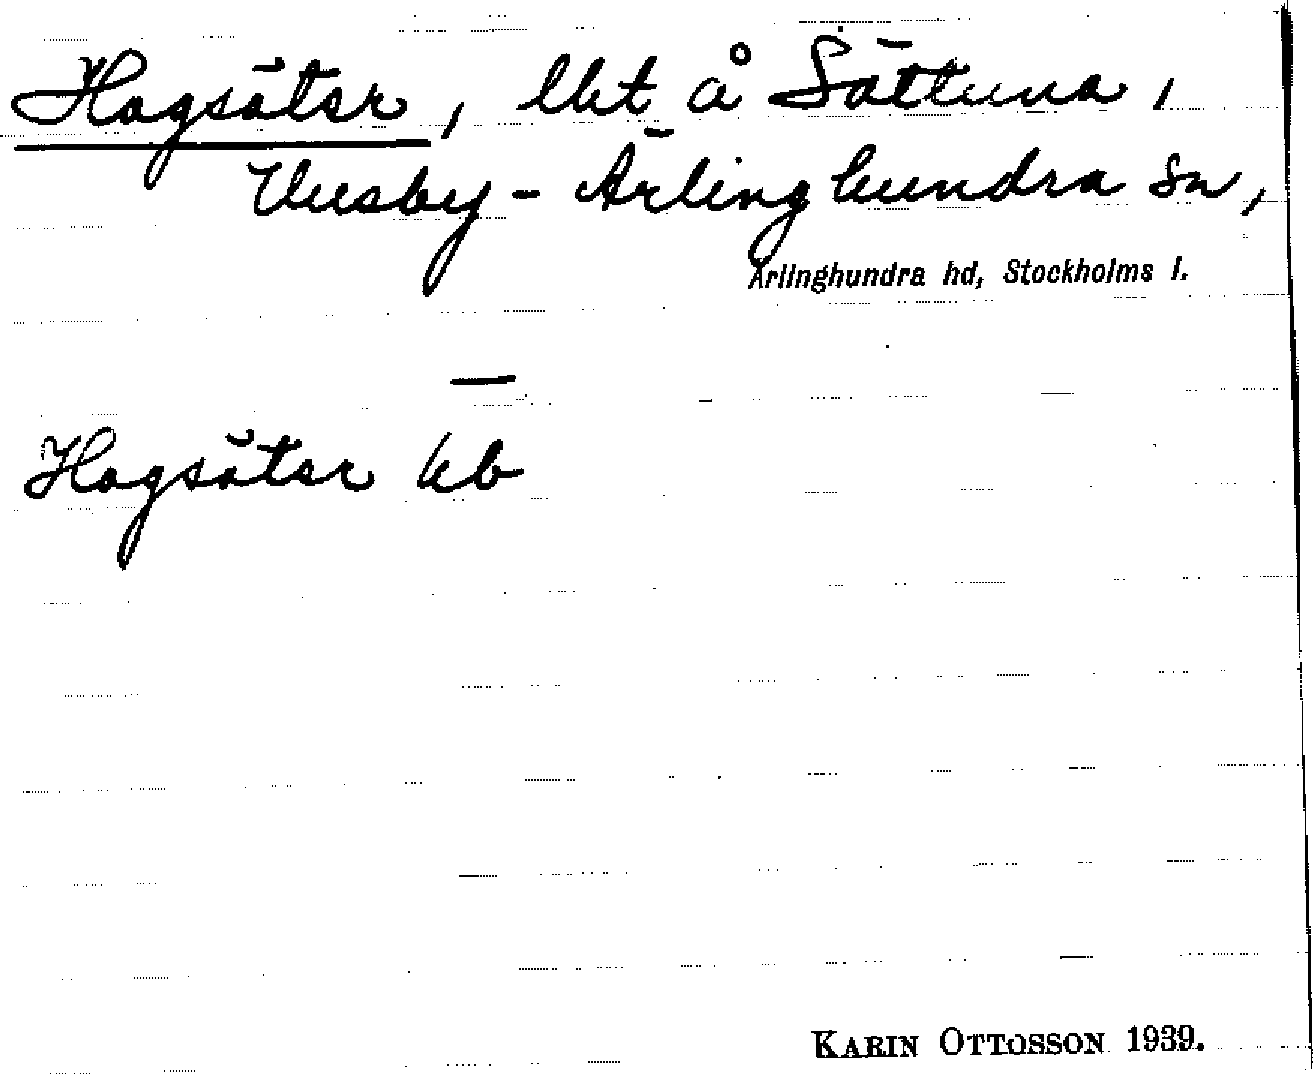 Hagsäter, lht å Sättuna,
Husby-Ärlinghundra sn,
Ärlinghundra hd, Stockholms l.
—
Hagsäter kb
KARIN OTTOSSON 1939.